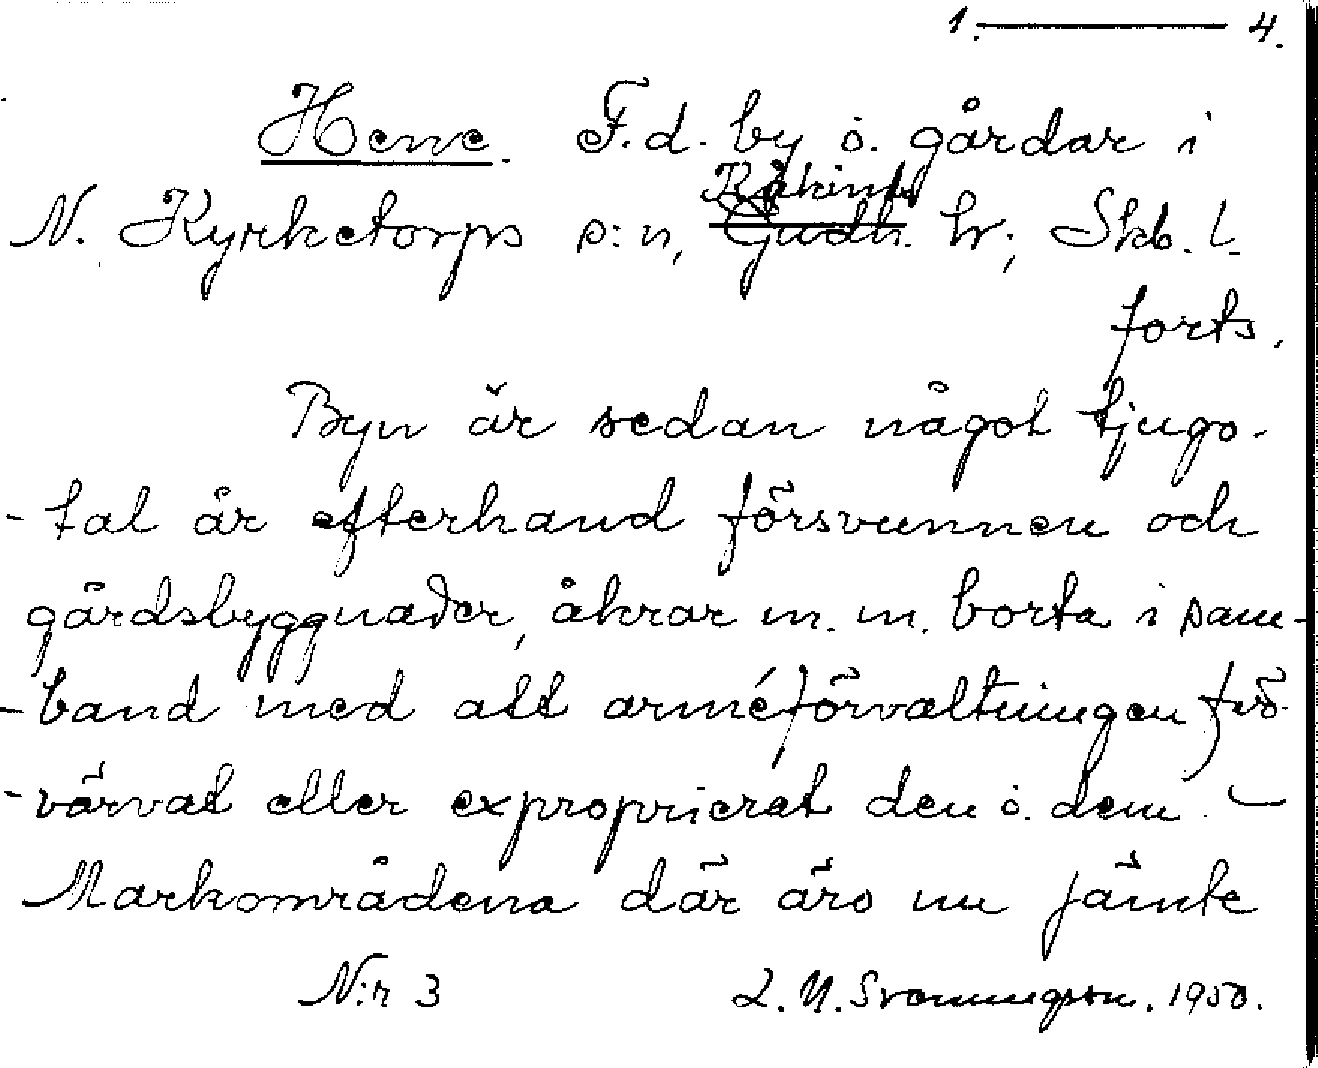 1. ——— 4.
Hene. F.d. by o. gårdar i
Kåkinds
N. Kyrketorps s:n, Gudh. hr; Skb. l.
forts.
Byn är sedan något tjugo-
-tal år efterhand försvunnen och
gårdsbyggnader, åkrar m. m. borta i sam-
-band med att arméförvaltningen för-
-värvat eller exproprierat den o. dem. —
Markområdena där äro nu jämte
N:r 3 L. N. Svenningson. 1950.